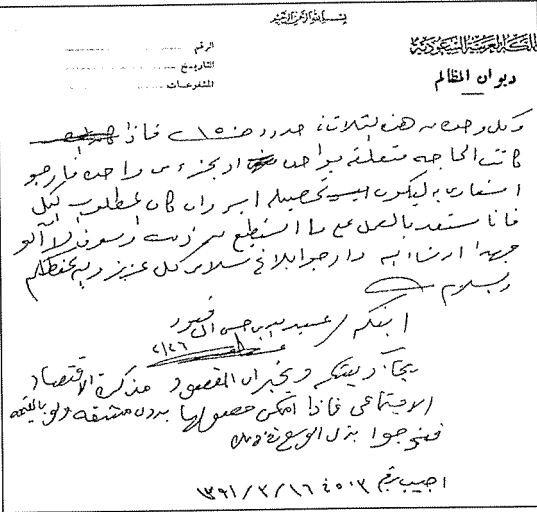 بسم الله الرحمن الرحيم
المملكة العربية السعودية
ديوان المظالم
الرقم
التاريخ
المشفوعات
وكل وحده من هذه الثلاث، حدود ١٥ فاذا
كانت الحاجه متعلقه بواحد او بجزء من واحد فارجو
اشعاري به ليكون تحصيله ايسر وان كان المطلوب الكل
فانا مستعد بالعمل على ما استطيع من ذلك وسوف لا آلو
جهدا ان شاء الله وارجو ابلاغ سلامي كل عزيز والله يحفظكم
والسلام
ابنكم عبد الله بن حسن ال قعود
٢/٢٦
يجاب ونخبر ان المقصود مذكرة الاقتصاد
الاجتماعي فاذا امكن حصولها بدون مشقه ولو بالقيمه
فنرجو بذل الوسع في ذلك
اجيب برقم ٤٥٠٣ ١٣٩١/٣/١٦